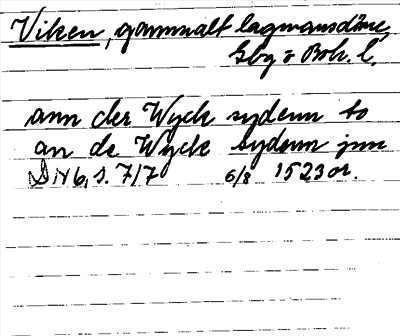 Viken, gammalt lagmansdöme,
Gbg o Boh. l.
ann der Wyck sydenn to
an de Wyck sydenn jnn
DN 6, s. 717 6/8 1523 or.